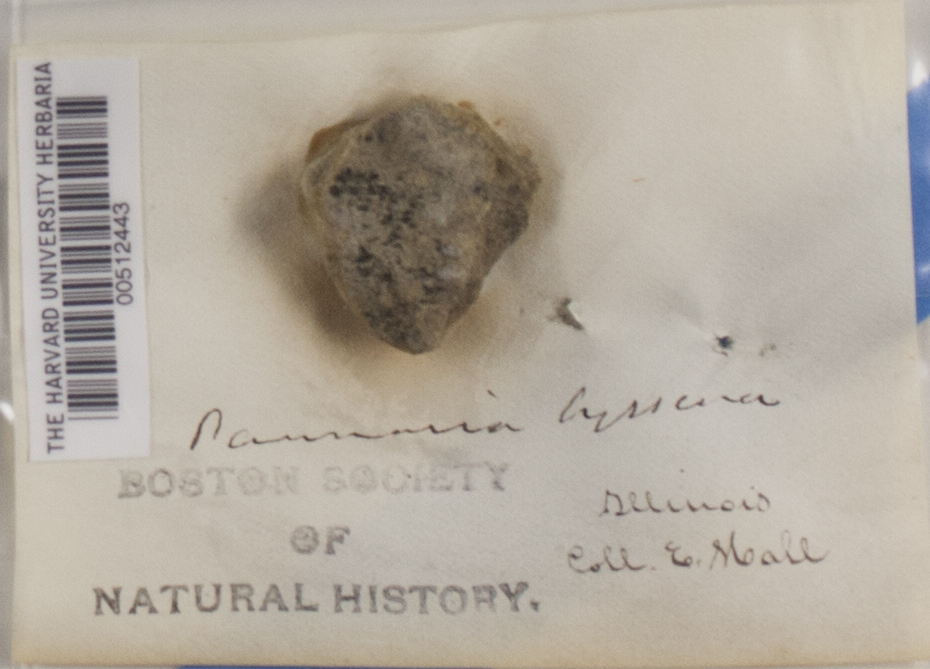 THE HARVARD UNIVERSITY HERBARIA
00512443
Pannaria byssina
BOSTON SOCIETY
OF
NATURAL HISTORY.
Illinois
Coll. E. Hall